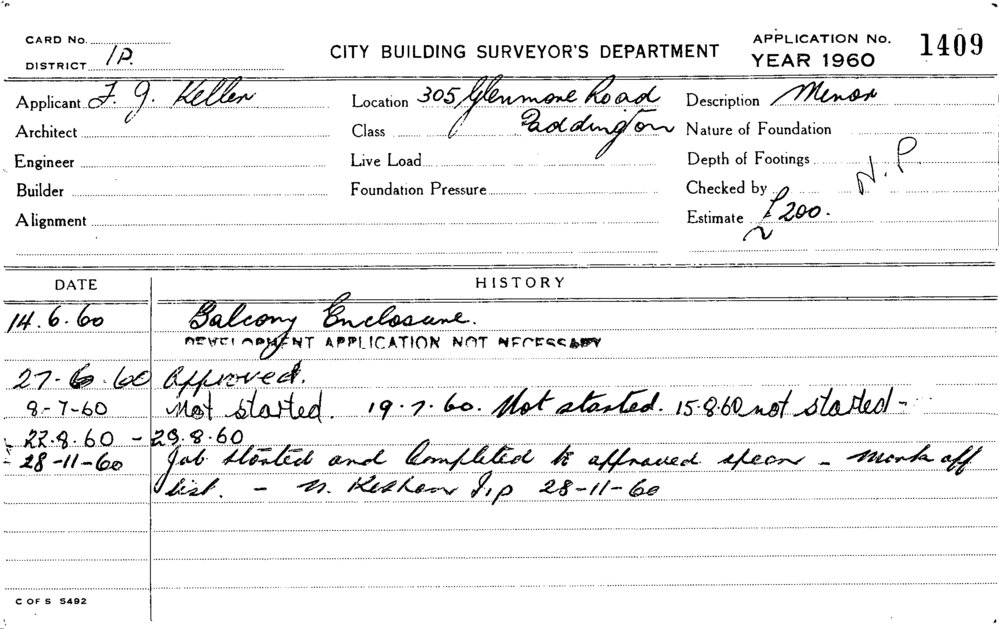 CARD No.
DISTRICT 1P.
CITY BUILDING SURVEYOR'S DEPARTMENT
APPLICATION No. 1409
YEAR 1960
Applicant F. J. Keller
Location 305 Glenmore Road
Paddington
Description Minor
Architect
Class
Nature of Foundation
Engineer
Live Load
Depth of Footings
N.P
Builder
Foundation Pressure
Checked by
Alignment
Estimate £200.
DATE HISTORY
14.6.60 Balcony Enclosure.
DEVELOPMENT APPLICATION NOT NECESSARY
27-6.60 Approved.
8-7-60 Not started. 19.7.60. Not started. 15.8.60 not started -
22.8.60 - 29.8.60
28-11-60 Job started and Completed to approved specn - Mark off
list. - N. 28-11-60
C OF S 5492